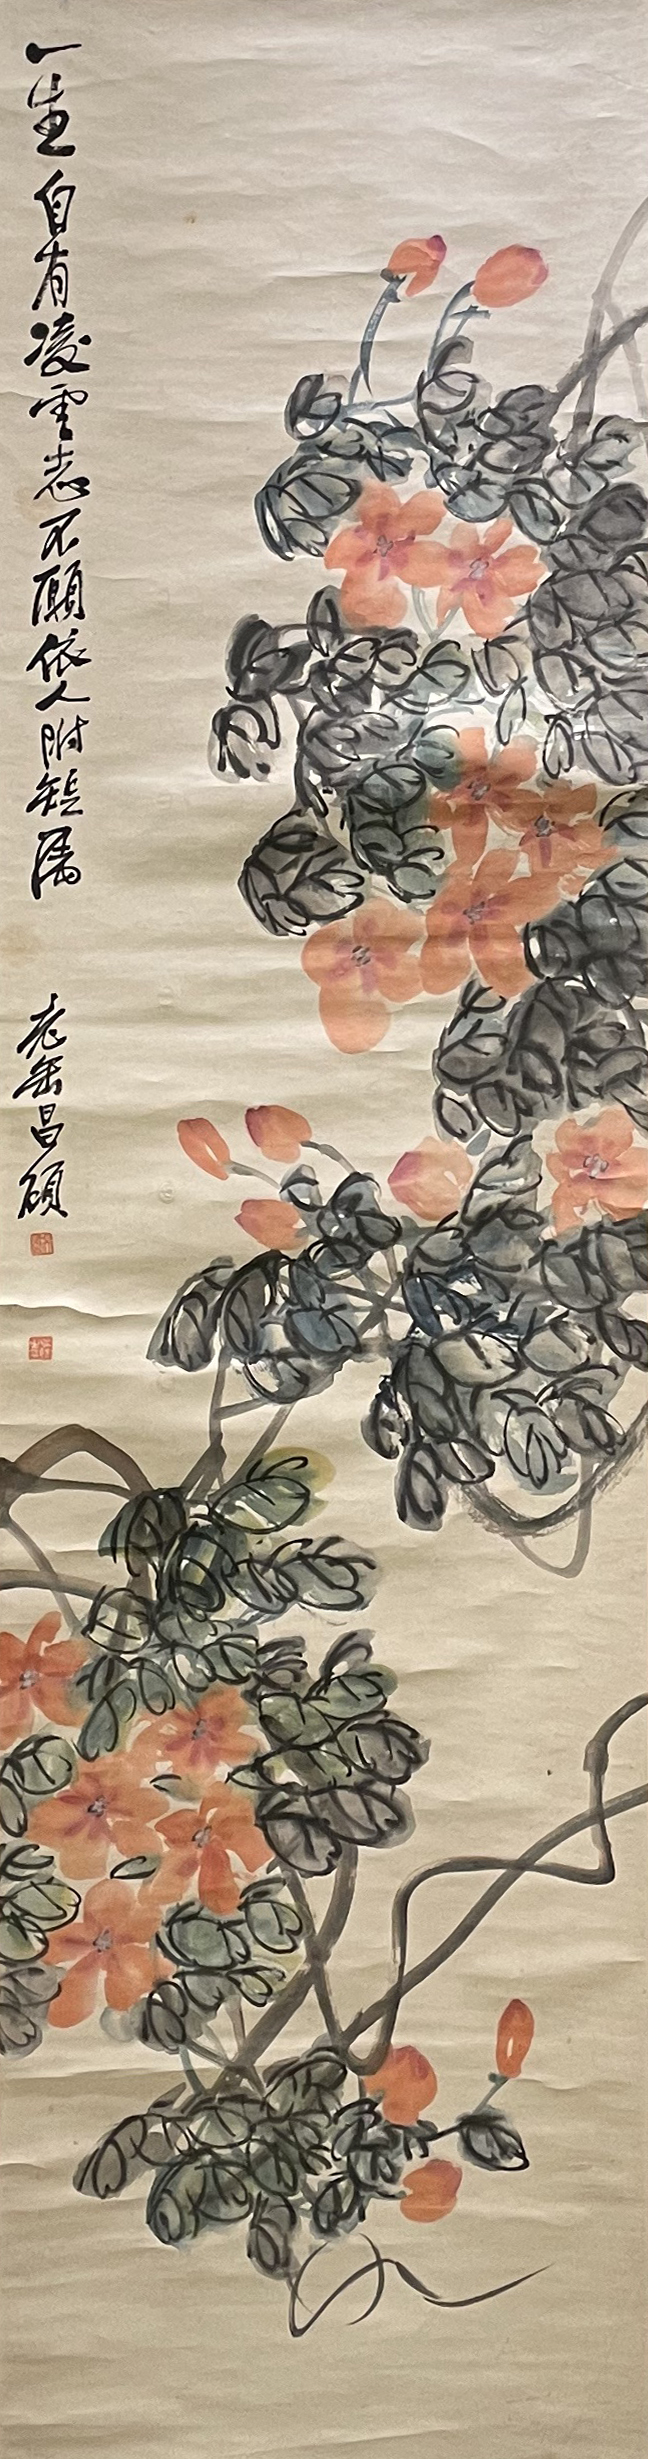 一生自有凌雲志不願依人附短籬
老缶昌碩